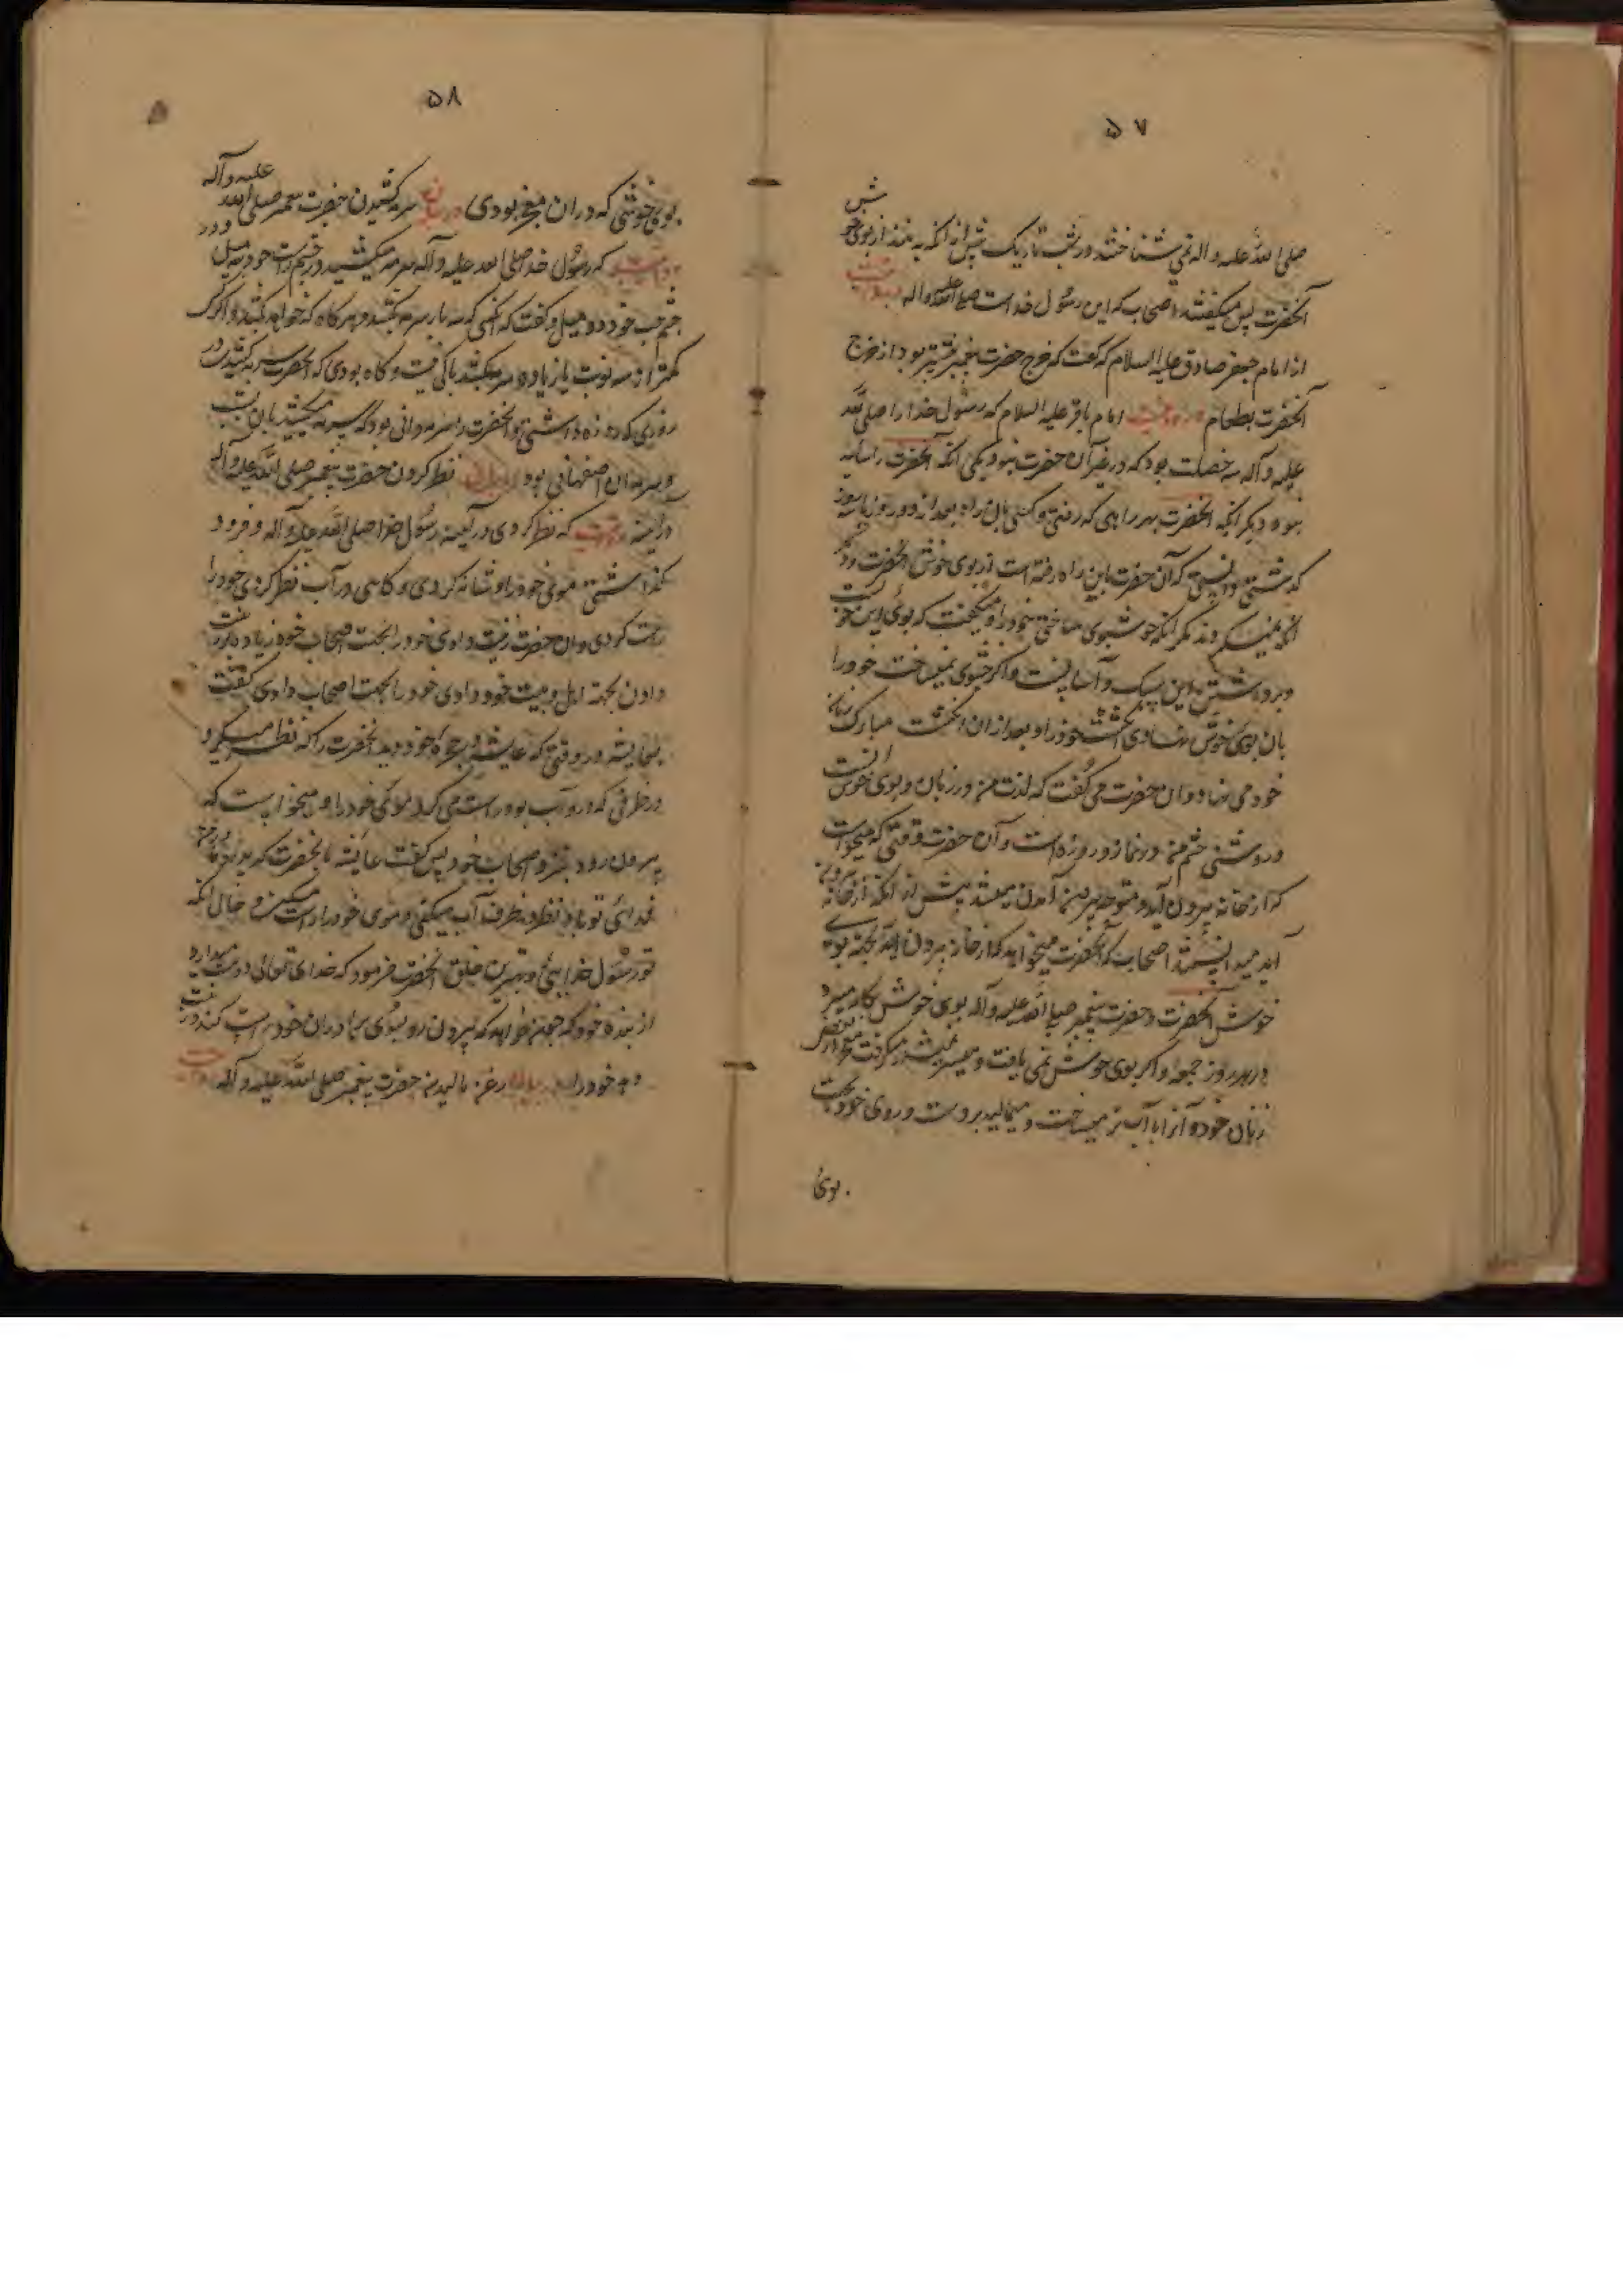 ۵۷
صلی الله علیه و اله می شناختند در شب تاریک پیش از انکه به بینند از بوی خوش
آنحضرت پس میگفتند اصحاب که این رسول خداست صلی الله علیه و اله و روایت
از امام جعفر صادق علیه السلام که گفت که خرج حضرت پیغمبر بیشتر بود از خرج
آنحضرت بطعام و روایت امام باقر علیه السلام که رسول خدا را صلی الله
علیه و آله سه خصلت بود که در غیر آن حضرت نبود یکی انکه آنحضرت را سایه
نبود دیگر انکه آنحضرت بهر راهی که رفتی و کسی بان راه بعد از دو روز یا سه روز
گذشتی دانستی که آن حضرت باین راه رفته است از بوی خوش آنحضرت و دیگر
مگر انکه خوشبوی ساختی خود را و میگفت که بوی این خوبست
و برداشتن این سبک و آسانست و اگر خوشبوی نمیساخت خود را
بان بوی خوش نهادی انگشت خود را و بعد از ان انگشت مبارک بزبان
خود می نهاد و ان حضرت می گفت که لذت من در زنان و بوی خوش است
و روشنی چشم من در نماز و روزه است و آن حضرت وقتی که میخواست
که از خانه بیرون آید و متوجه بیرون آمدن میشد پیش از آنکه از خانه بیرون
آید میدانستند اصحاب که آنحضرت میخواهد که از خانه بیرون اید بجهة بوی
خوش آنحضرت و حضرت پیغمبر صلی الله علیه و آله بوی خوش بکار میبرد
در هر روز جمعه و اگر بوی خوش نمی یافت و میسر نمیشد میگرفت بعضی
زنان خود و آنرا باآب تر میساخت و میمالید بر دست و روی خود بجهت
بوی
۵۸
بوی خوشی که در ان مقنع بودی در بیان سرمه کشیدن حضرت پیغمبر صلی الله علیه و آله
روایتست که رسول خدا صلی الله علیه و آله سرمه میکشید در چشم راست خود سه میل و در
چشم چپ خود دو میل و گفت که کسی که سه بار سرمه بکشد و هر گاه که خواهد بکشد و اگر کسی
کمتر از سه نوبت یا زیاده سرمه بکشد باکی نیست و گاه بودی که آنحضرت سرمه کشیدی در
روزی که روزه داشتی و آنحضرت را سرمه دانی بود که سرمه میکشید بان شب
و سرمه ان اصفهانی بود در بیان نظر کردن حضرت پیغمبر صلی الله علیه و آله
در آینه روایتست که نظر کردی در آینه رسول خدا صلی الله علیه و آله و فرود
گذاشتی موی خود را و شانه کردی و گاهی در آب نظر کردی و خود را
راست کردی و ان حضرت زینت دادی خود را بجهت اصحاب خود زیاده از زینت
دادن بجهة اهل بیت خود و دادی خود را بجهت اصحاب دادی گفت
بعایشه در وقتی که عایشه در حجره خود دید آنحضرت را که نظر میکرد
در ظرفی که در او آب بود و راست می کرد موی خود را و میخواست که
بیرون رود بنزد اصحاب خود پس گفت عایشه بآنحضرت که پدر و مادرم
فدای تو باد نظر در ظرف آب میکنی و موی خود را راست میکنی و حال آنکه
تو رسول خدایی و بهترین خلق آنحضرت فرمود که خدای تعالی دوست میدارد
از بنده خود که چون خواهد که بیرون رود بسوی برادران خود راست کند و زینت
دهد خود را در بیان روغن مالیدن حضرت پیغمبر صلی الله علیه و آله روایتست